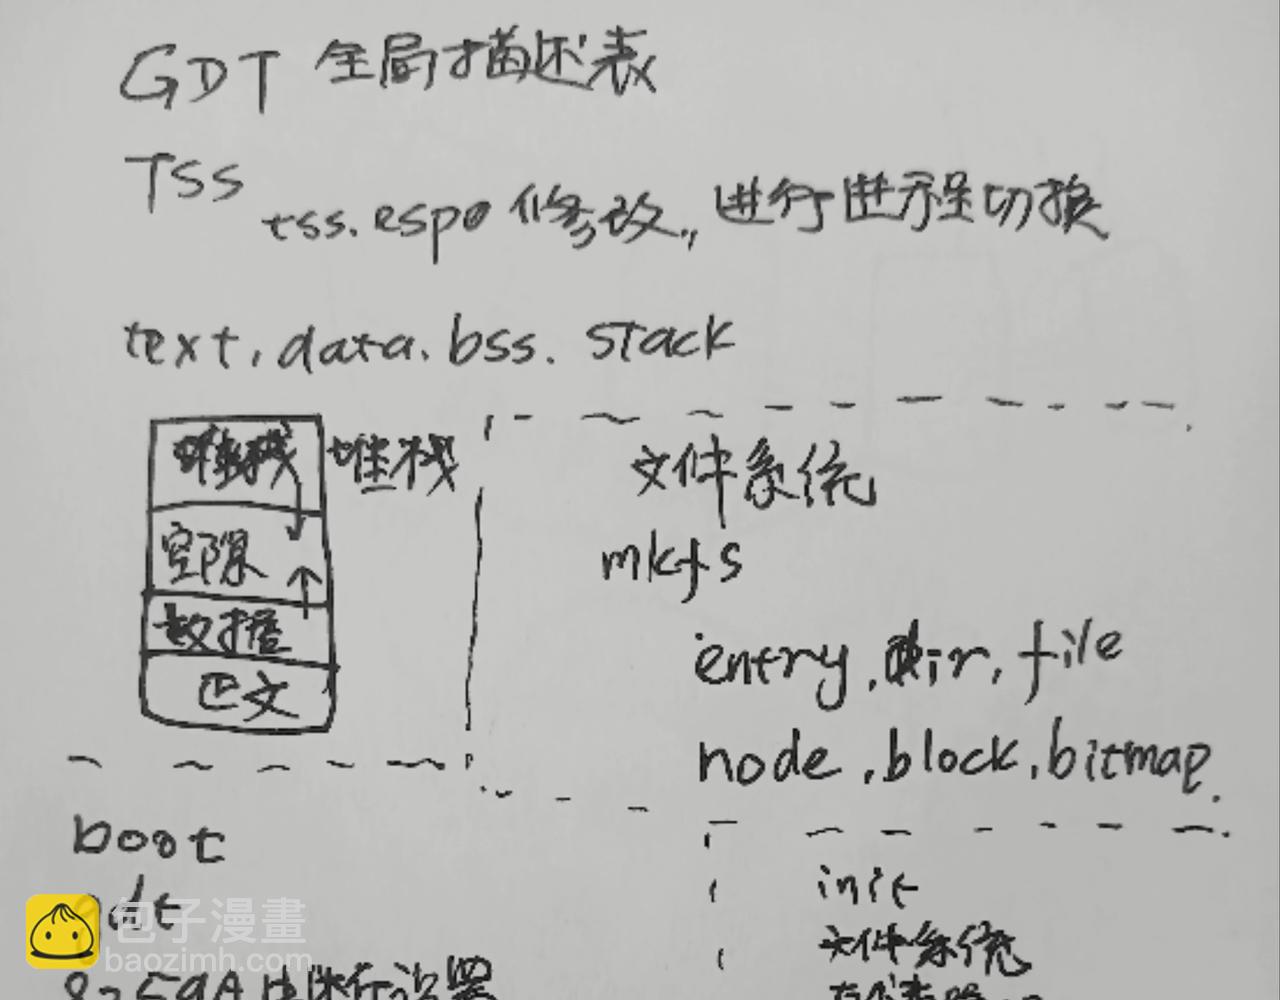 GDT 全局描述表
TSS
tss.esp0 修改，进行进程切换
text, data. bss. stack
堆栈 堆栈
空隙
数据
正文
文件系统
mkfs
entry, dir, file
node, block, bitmap.
boot
gdt
8259A
init
文件系统
包子漫畫
baozimh.com